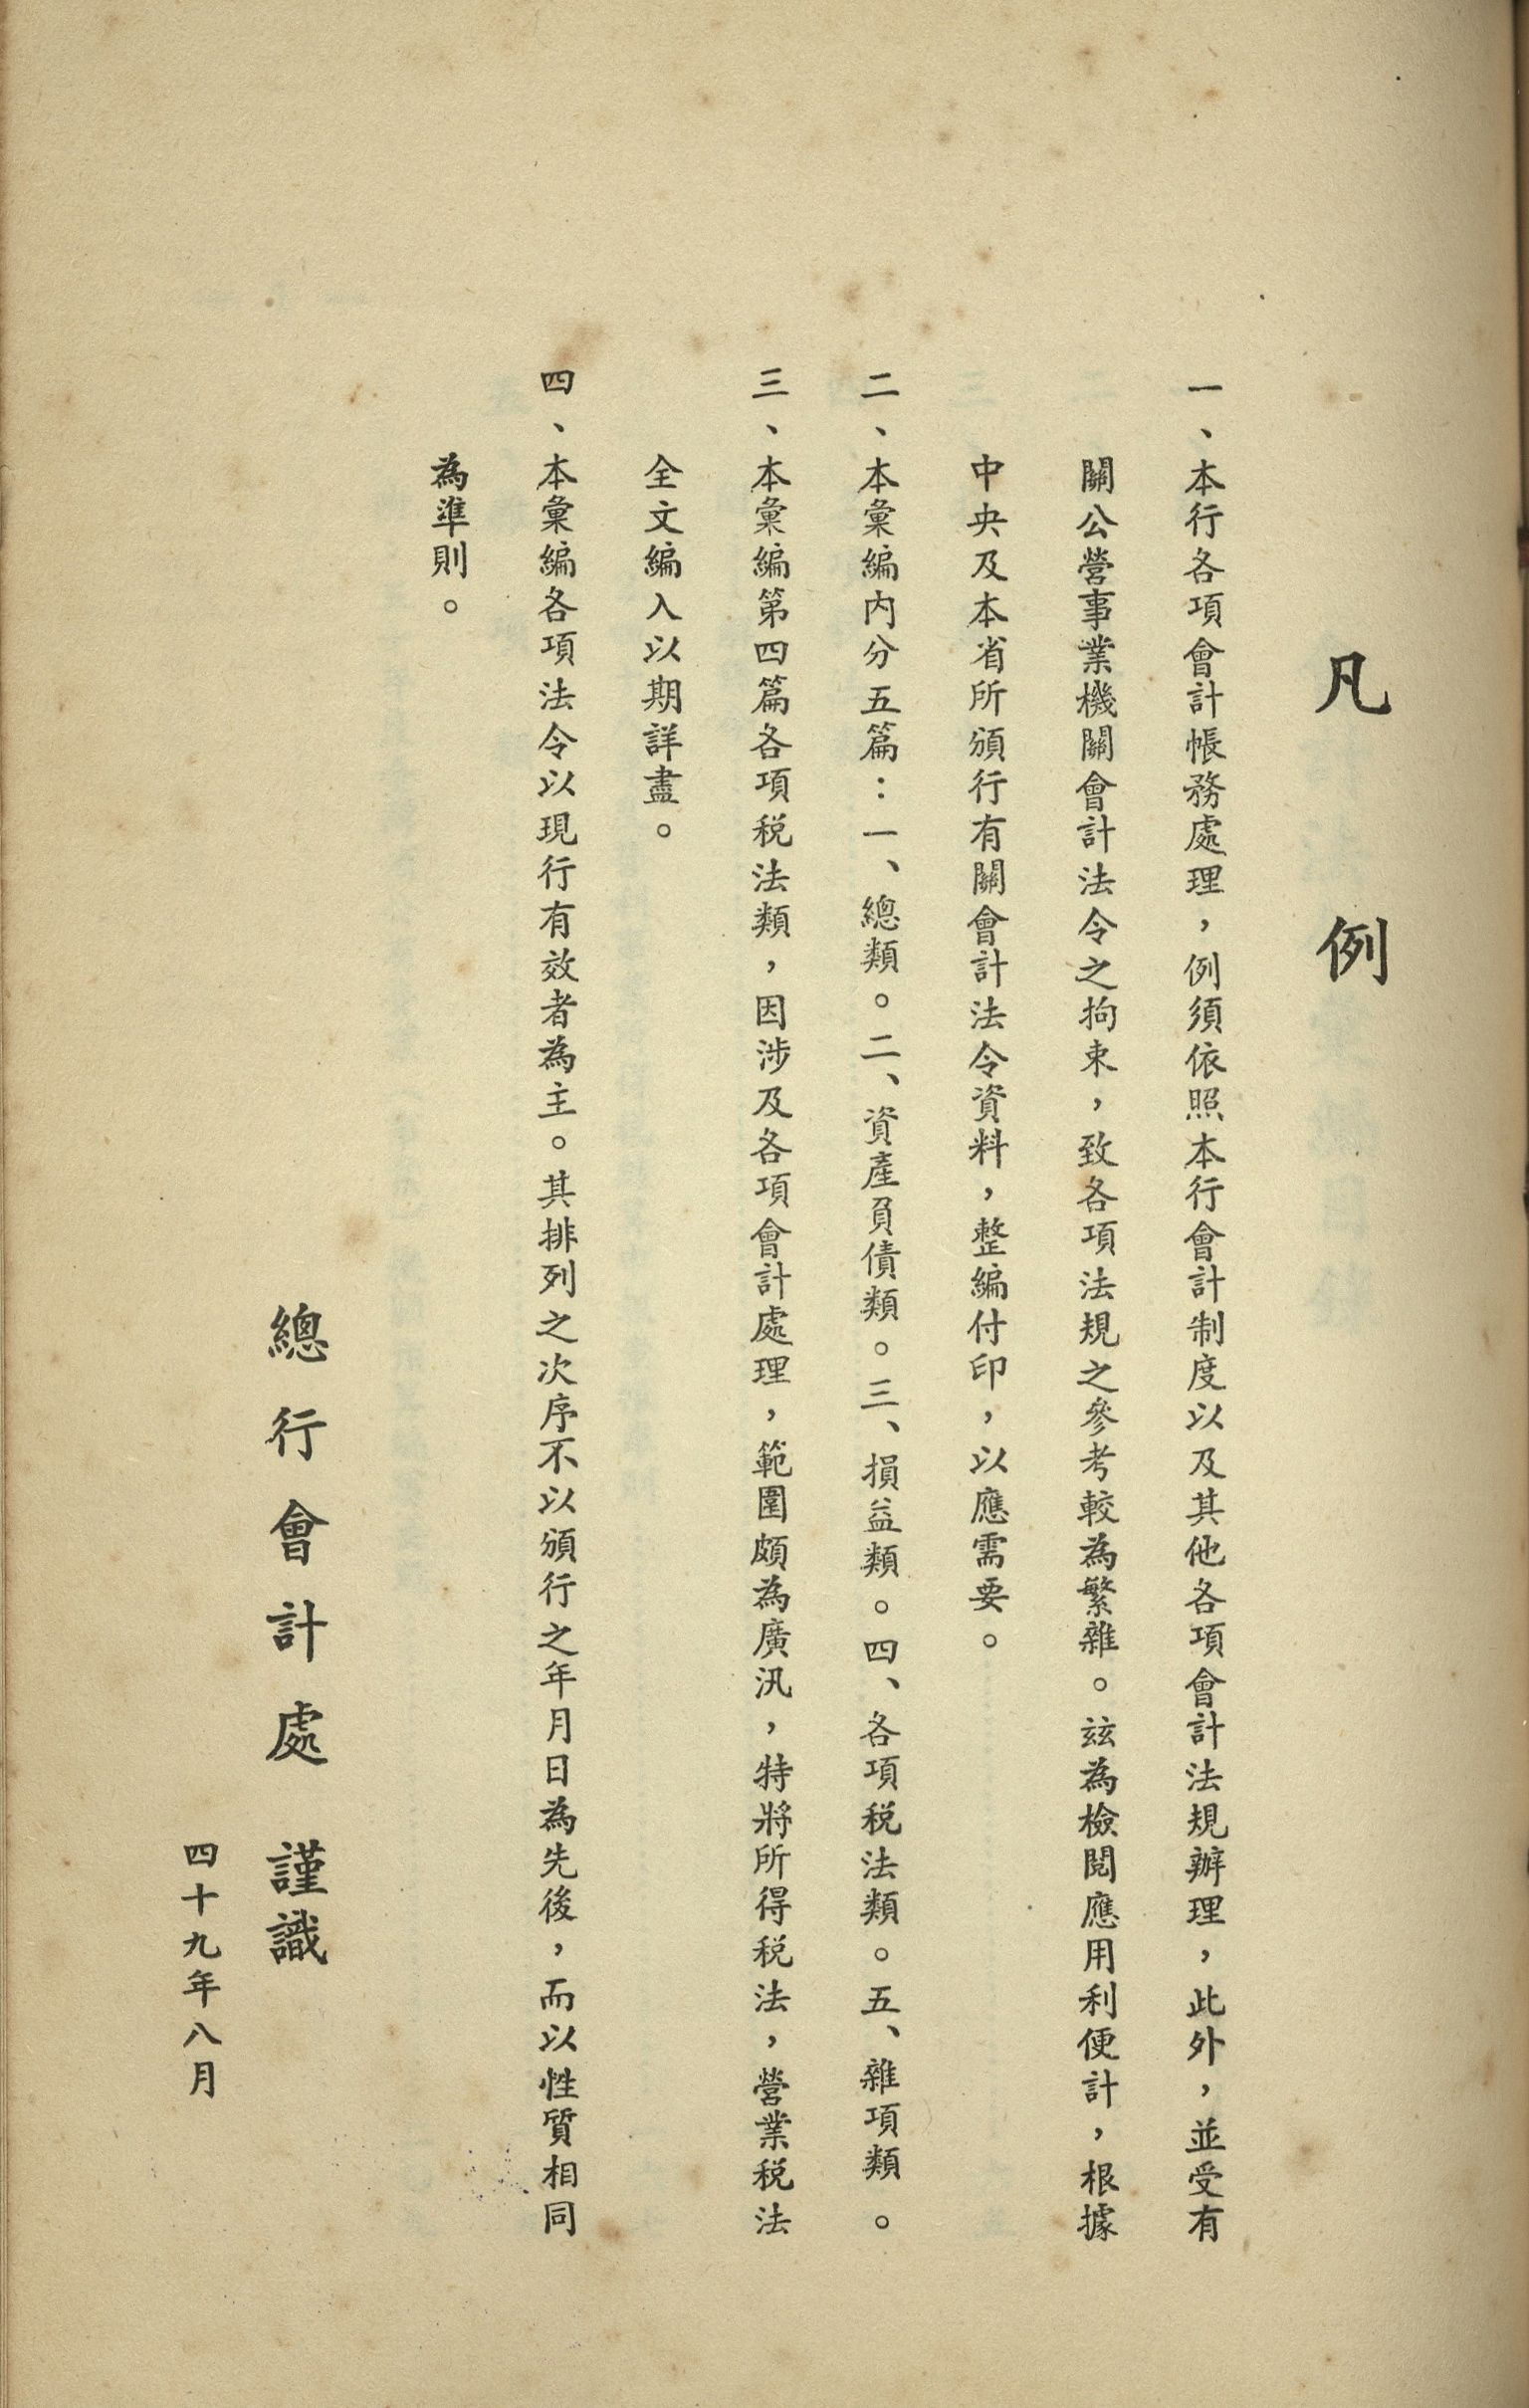 凡例
一、本行各項會計帳務處理，例須依照本行會計制度以及其他各項會計法規辦理，此外，並受有
關公營事業機關會計法令之拘束，致各項法規之參考較為繁雜。玆為檢閱應用利便計，根據
中央及本省所頒行有關會計法令資料，整編付印，以應需要。
二、本彙編內分五篇：一、總類。二、資產負債類。三、損益類。四、各項稅法類。五、雜項類。
三、本彙編第四篇各項稅法類，因涉及各項會計處理，範圍頗為廣汎，特將所得稅法，營業稅法
全文編入以期詳盡。
四、本彙編各項法令以現行有效者為主。其排列之次序不以頒行之年月日為先後，而以性質相同
為準則。
總行會計處 謹識
四十九年八月